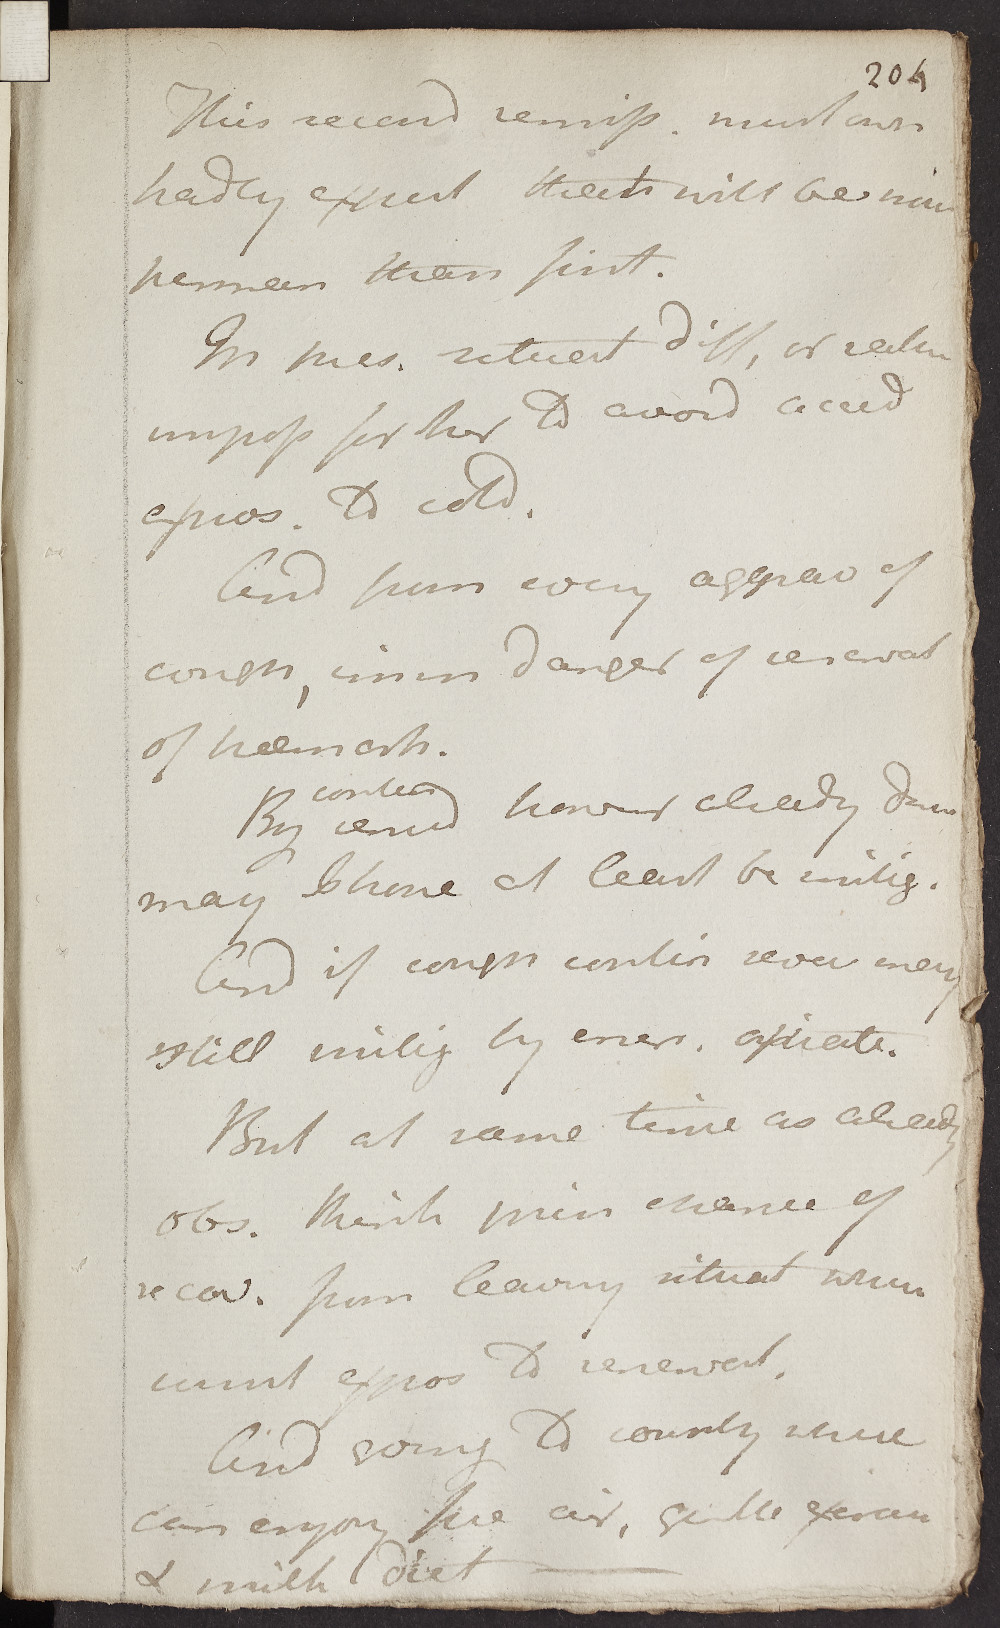 204
This second remiss. must own
hadly expect that will be more
perman than first.
In pres. situat diff, or rather
imposs for her to avoid accid
expos. to cold.
And from every aggrav of
cough, imm danger of renewal
of haemorh.
contin
By remed however already
may I hope at least be mitig.
And if cough contin sever may
still mitig by opiate.
But at same time as already
obs. think prin chance of
recov. from leaving situat where
must expos to renewal.
And going to country where
can enjoy free air, gentle exercise
& milk diet